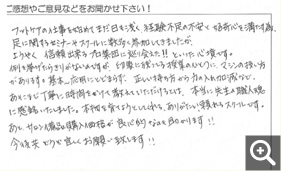 ご感想やご意見などをお聞かせ下さい！
フットケアの仕事を始めてまだ日も浅く経験不足の不安と好奇心を満たす為、
足に関するセミナースクールに数多く参加してきましたが、
ようやく信頼出来るプロ集団に巡り会えた!!という心境です。
例を挙げたらきりがないのですが、印象に残っている授業のひとつに、マシンの扱い方
があります。基本、応用にとどまらず、正しい持ち方から力の入れ加減など、
あそこまで丁寧に時間をかけて教えていただけるとは、本当に先生の職人魂
に感動いたしました。本物を育てようとしてくれる、ありがたい頼れるスクールです。
あと、サロン備品の購入価格が良心的なのも助かります!!
今後共どうぞ宜しくお願い致します!!